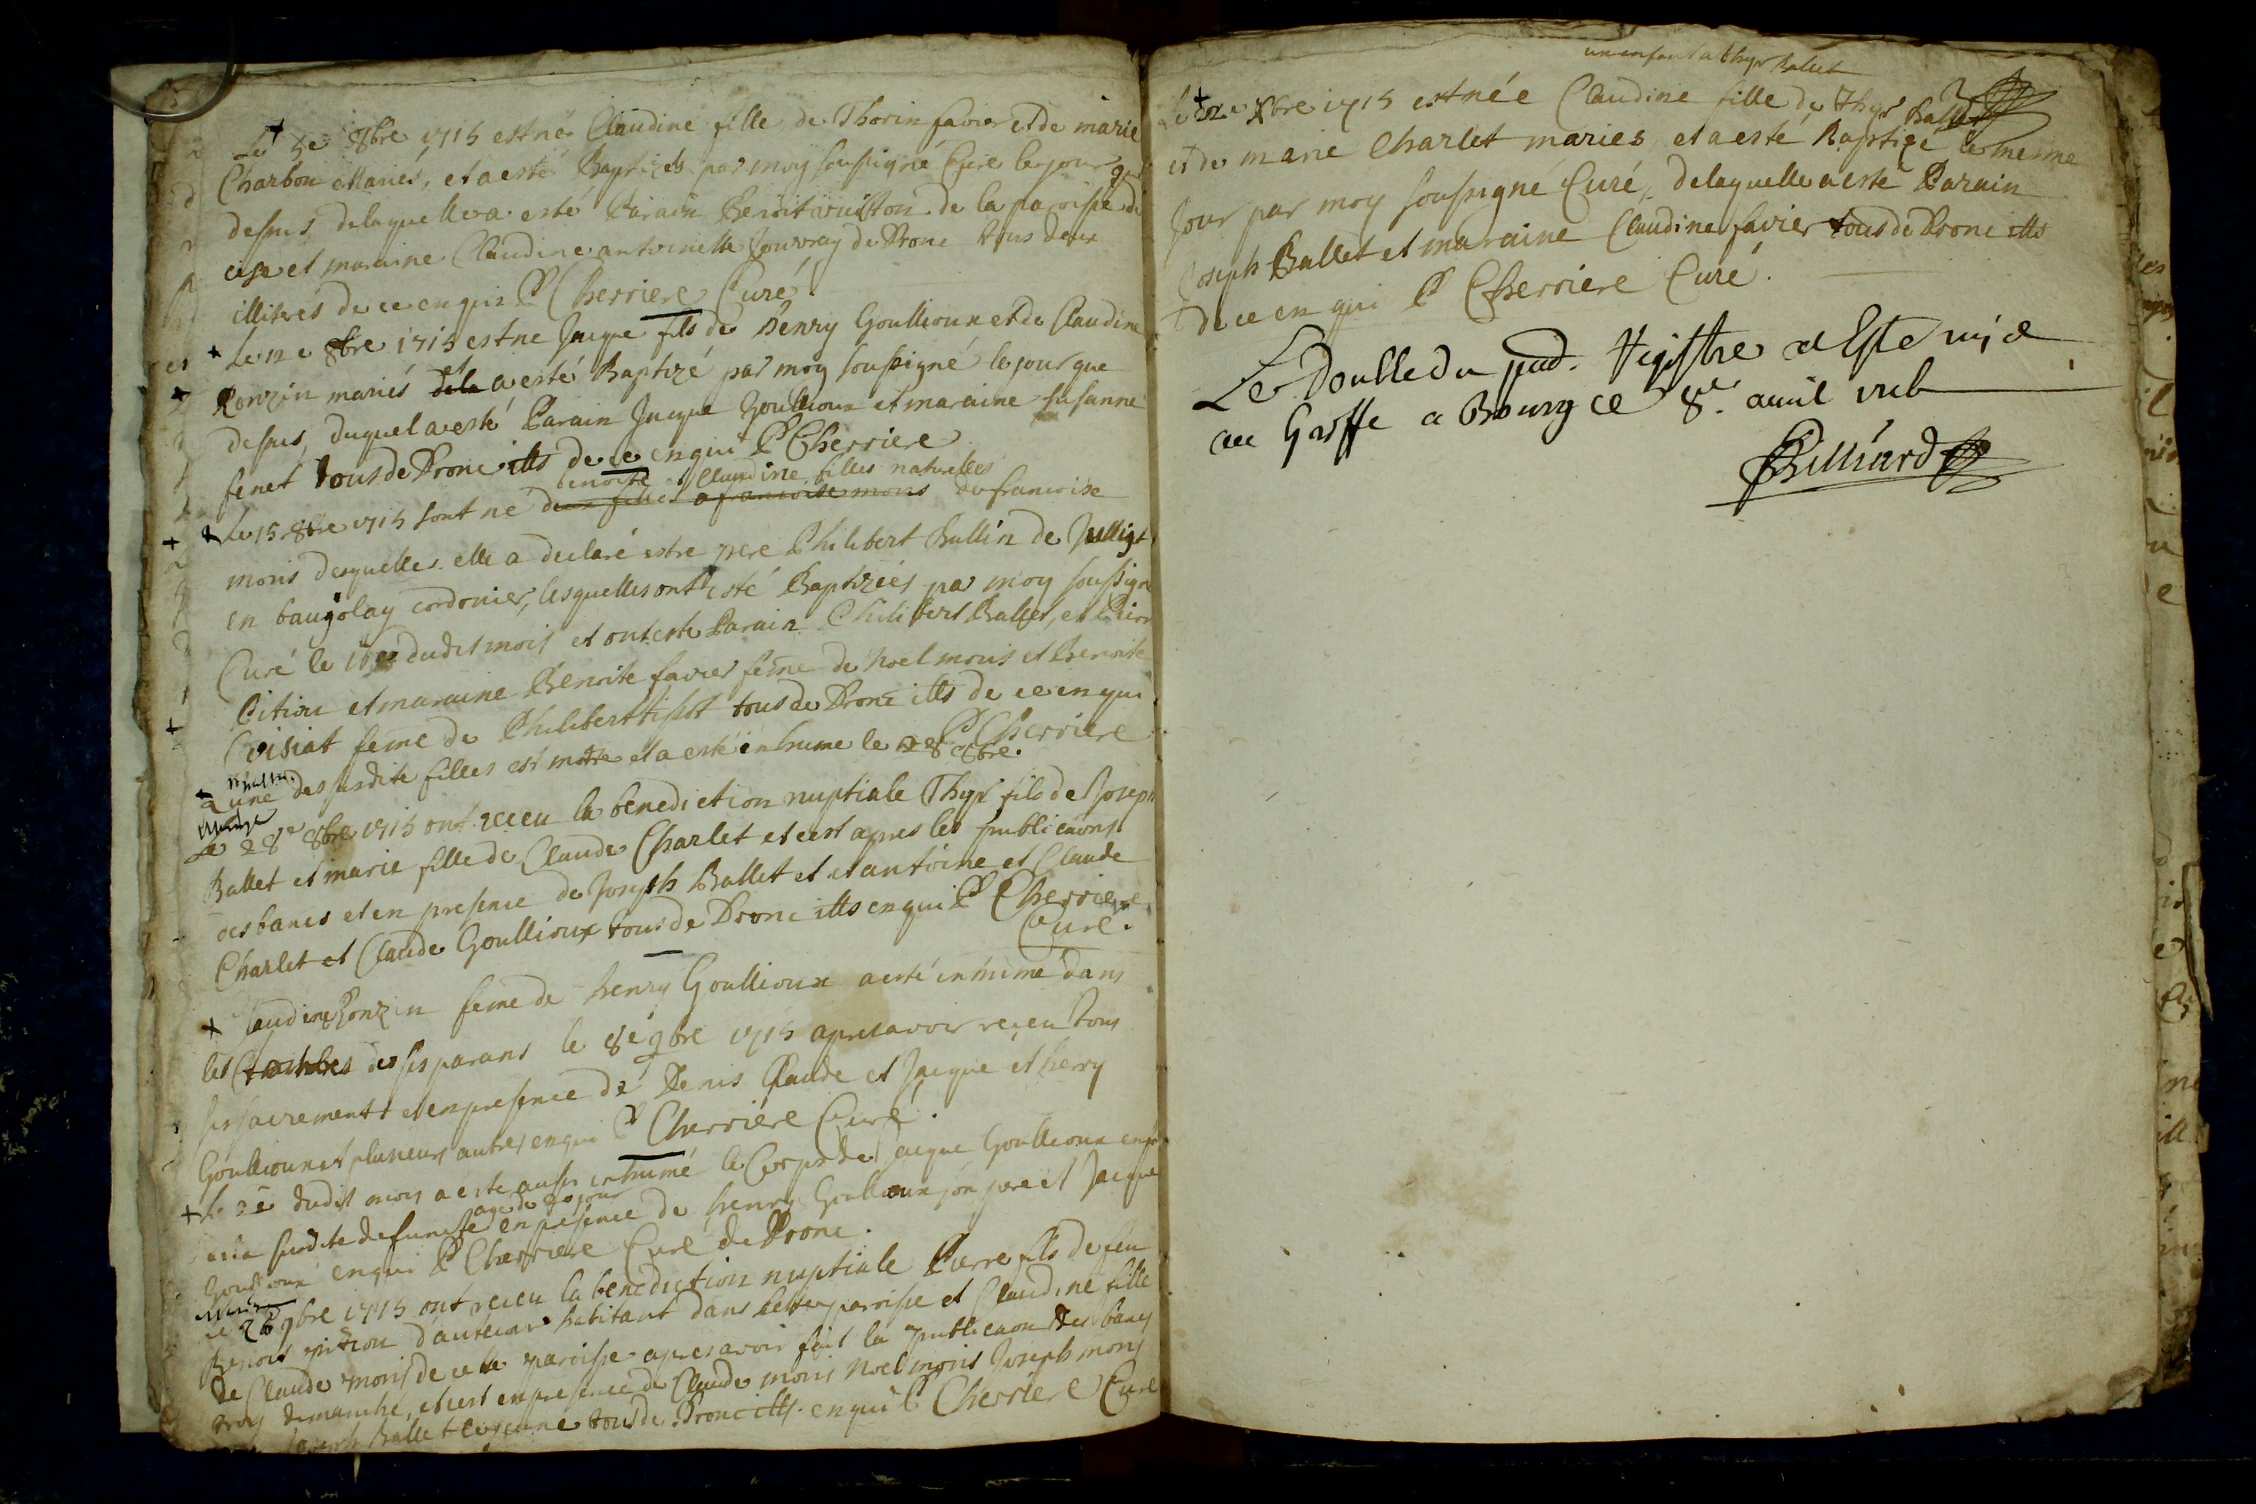 Le 5e 8bre 1715 est née Claudine fille de Thorin favier et de marie
Charbon Mariés, et a esté Baptizée par moy soussigné Curé le jour que
dessus delaquelle a esté Parain Benoit de la paroisse de
et maraine Claudine antoinette Jouvray de Dronc tous deux
illitrés de ce enquis P Cherriere Curé.
Le 12e 8bre 1715 est ne Jacque fils de Henry Goullioux et de Claudine
Ronzin mariés a esté Baptizé par moy soussigné le jour que
dessus, duquel a esté Parain Jacque Goullioux et maraine susanne
fenet tous de Dronc itts de ce enqui P Cherriere
benoite et Claudine filles naturelles
Le 15 8bre 1715 sont né deux filles a francoise moris de francoise
moris desquelles elle a declaré estre pere Philibert Bullin de
en baujolay cordonier, lesquelles ont esté Baptizées par moy soussigné
Curé le dudit mois et ont esté Parain Philibert Ballet, et Pierre
Pition et maraine Benoite favier feme de Noel moris et Benoite
Croisiat feme de Philibert tissot tous de Dronc itts de ce en qui
P Cherriere
L'une des susdite filles est morte et a esté inhumé le 28 8bre.
Mariage
Le 28e 8bre 1715 ont receu la benediction nuptiale Thyr fils de Joseph
Ballet et marie fille de Claude Charlet et c'est apres les publicaons
des bancs et en presence de Joseph Ballet et et antoine et Claude
Charlet et Claude Goullioux tous de Dronc itts enqui P Cherriere
Curé.
Claudine Ronzin feme de henry Goullioux a esté inhumé dans
les tombes de ses parans le 8e 9bre 1715 apres avoir receu tous
ses sacrements et en presence de Denis Claude et Jacque et henry
Goullioux et plusieurs autres enqui P Cherriere Curé.
Le dudit mois a este aussi inhumé le Corps de Jacque Goullioux enfant
agé de jour
a la susdite defuncte en presence de henry Goullioux son pere et Jacque
Goullioux enqui P Cherriere Curé de Dronc.
Mariage
Le 26 9bre 1715 ont receu la benediction nuptiale Pierre fils de feu
Benoit pition habitant dans cette paroisse et Claudine fille
de Claude moris de cette paroisse apres avoir fait la publicaon des bancs
trois dimanche, et c'est en presence de Claude moris Noel moris Joseph moris
Joseph Ballet le jeune tous de Dronc itts. enqui P Cherriere Curé
un enfant a thyr Ballet
Le xbre 1715 est née Claudine fille de Thyr Ballet
et de marie Charlet mariés, et a esté Baptizé le mesme
Jour par moy soussigné Curé, delaquelle a esté Parain
Joseph Ballet et maraine Claudine favier tous de Dronc itts
de ce en qui P Cherriere Curé.
Le Double du pnt. Registre a Esté mis
au Greffe a Bourg ce 8e. avril
Billiard